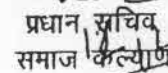 प्रधान सचिव
समाज कल्याण